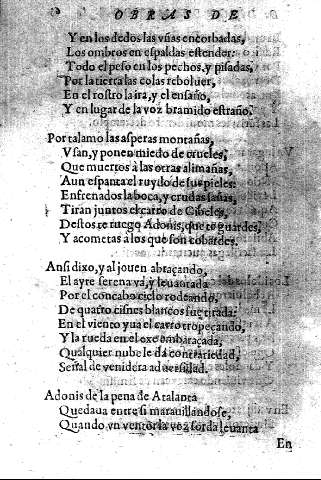 OBRAS DE
Y en los dedos las vñas encorbadas,
Los ombros en espaldas estender:
Todo el peso en los pechos, y pisadas,
Por la tierra las colas reboluer,
En el rostro la ira, y el ensaño,
Y en lugar de la voz bramido estraño.
Por talamo las asperas montañas,
Vsan, y ponen miedo de crueles,
Que muertos à las otras alimañas,
Aun espanta el ruydo de sus pieles:
Enfrenados la boca, y crudas sañas,
Tiran juntos el carro de Cibeles,
Destos te ruego Adonis, que te guardes,
Y acometas a los que son cobardes.
Ansi dixo, y al jouen abraçando,
El ayre serena va, y leuantada
Por el concabo cielo rodeando,
De quatro cisnes blancos fue tirada:
En el viento yua el carro tropeçando,
Y la rueda en el exe embaraçada,
Qualquier nube le dà contrariedad,
Señal de venidera aduersidad.
Adonis de la pena de Atalanta
Quedaua entre si marauillandose,
Quando vn ventor la voz sorda leuanta
En